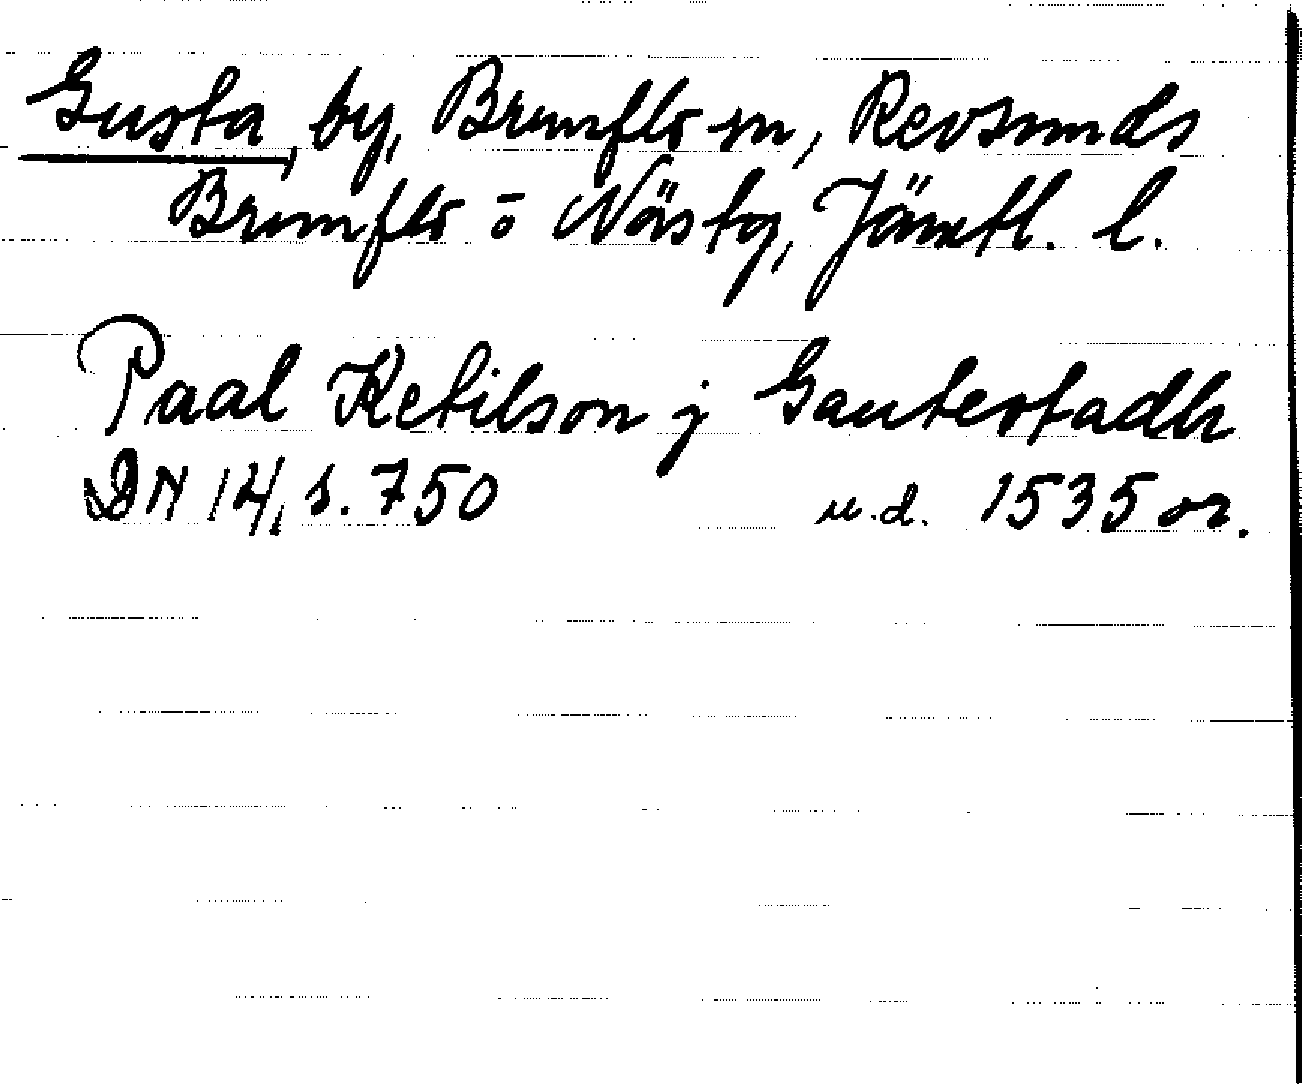 Gusta, by, Brunflo sn, Revsunds
Brunflo o Näs tg, Jämtl. l.
Paal Ketilson j Gautestadh
DN 14, s. 750 u.d. 1535 or.